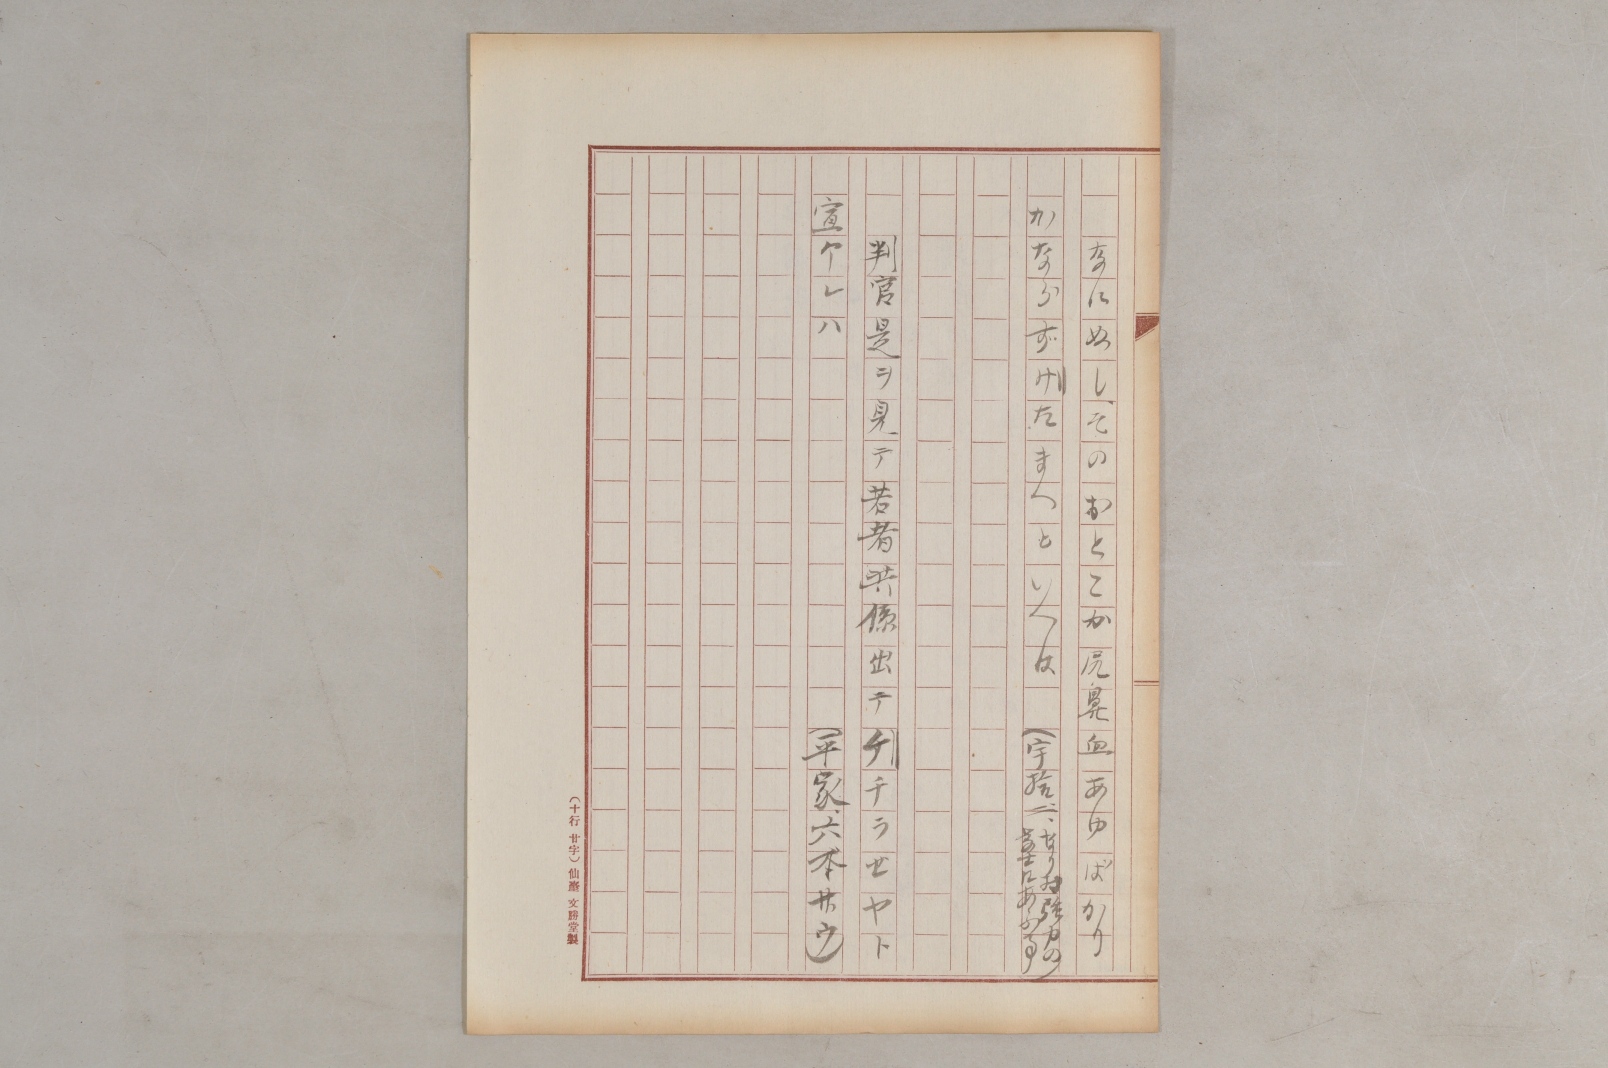 なにぬし、そのおとこか尻鼻血あゆばかり
かならずけたまへといへは（宇拾二、なりむら強力の
学士にあふ事）
判官是ヲ見テ若者共係出テケチラセヤト
宣ケレハ（平家、六本廿ウ）
（十行廿字）仙臺文勝堂製